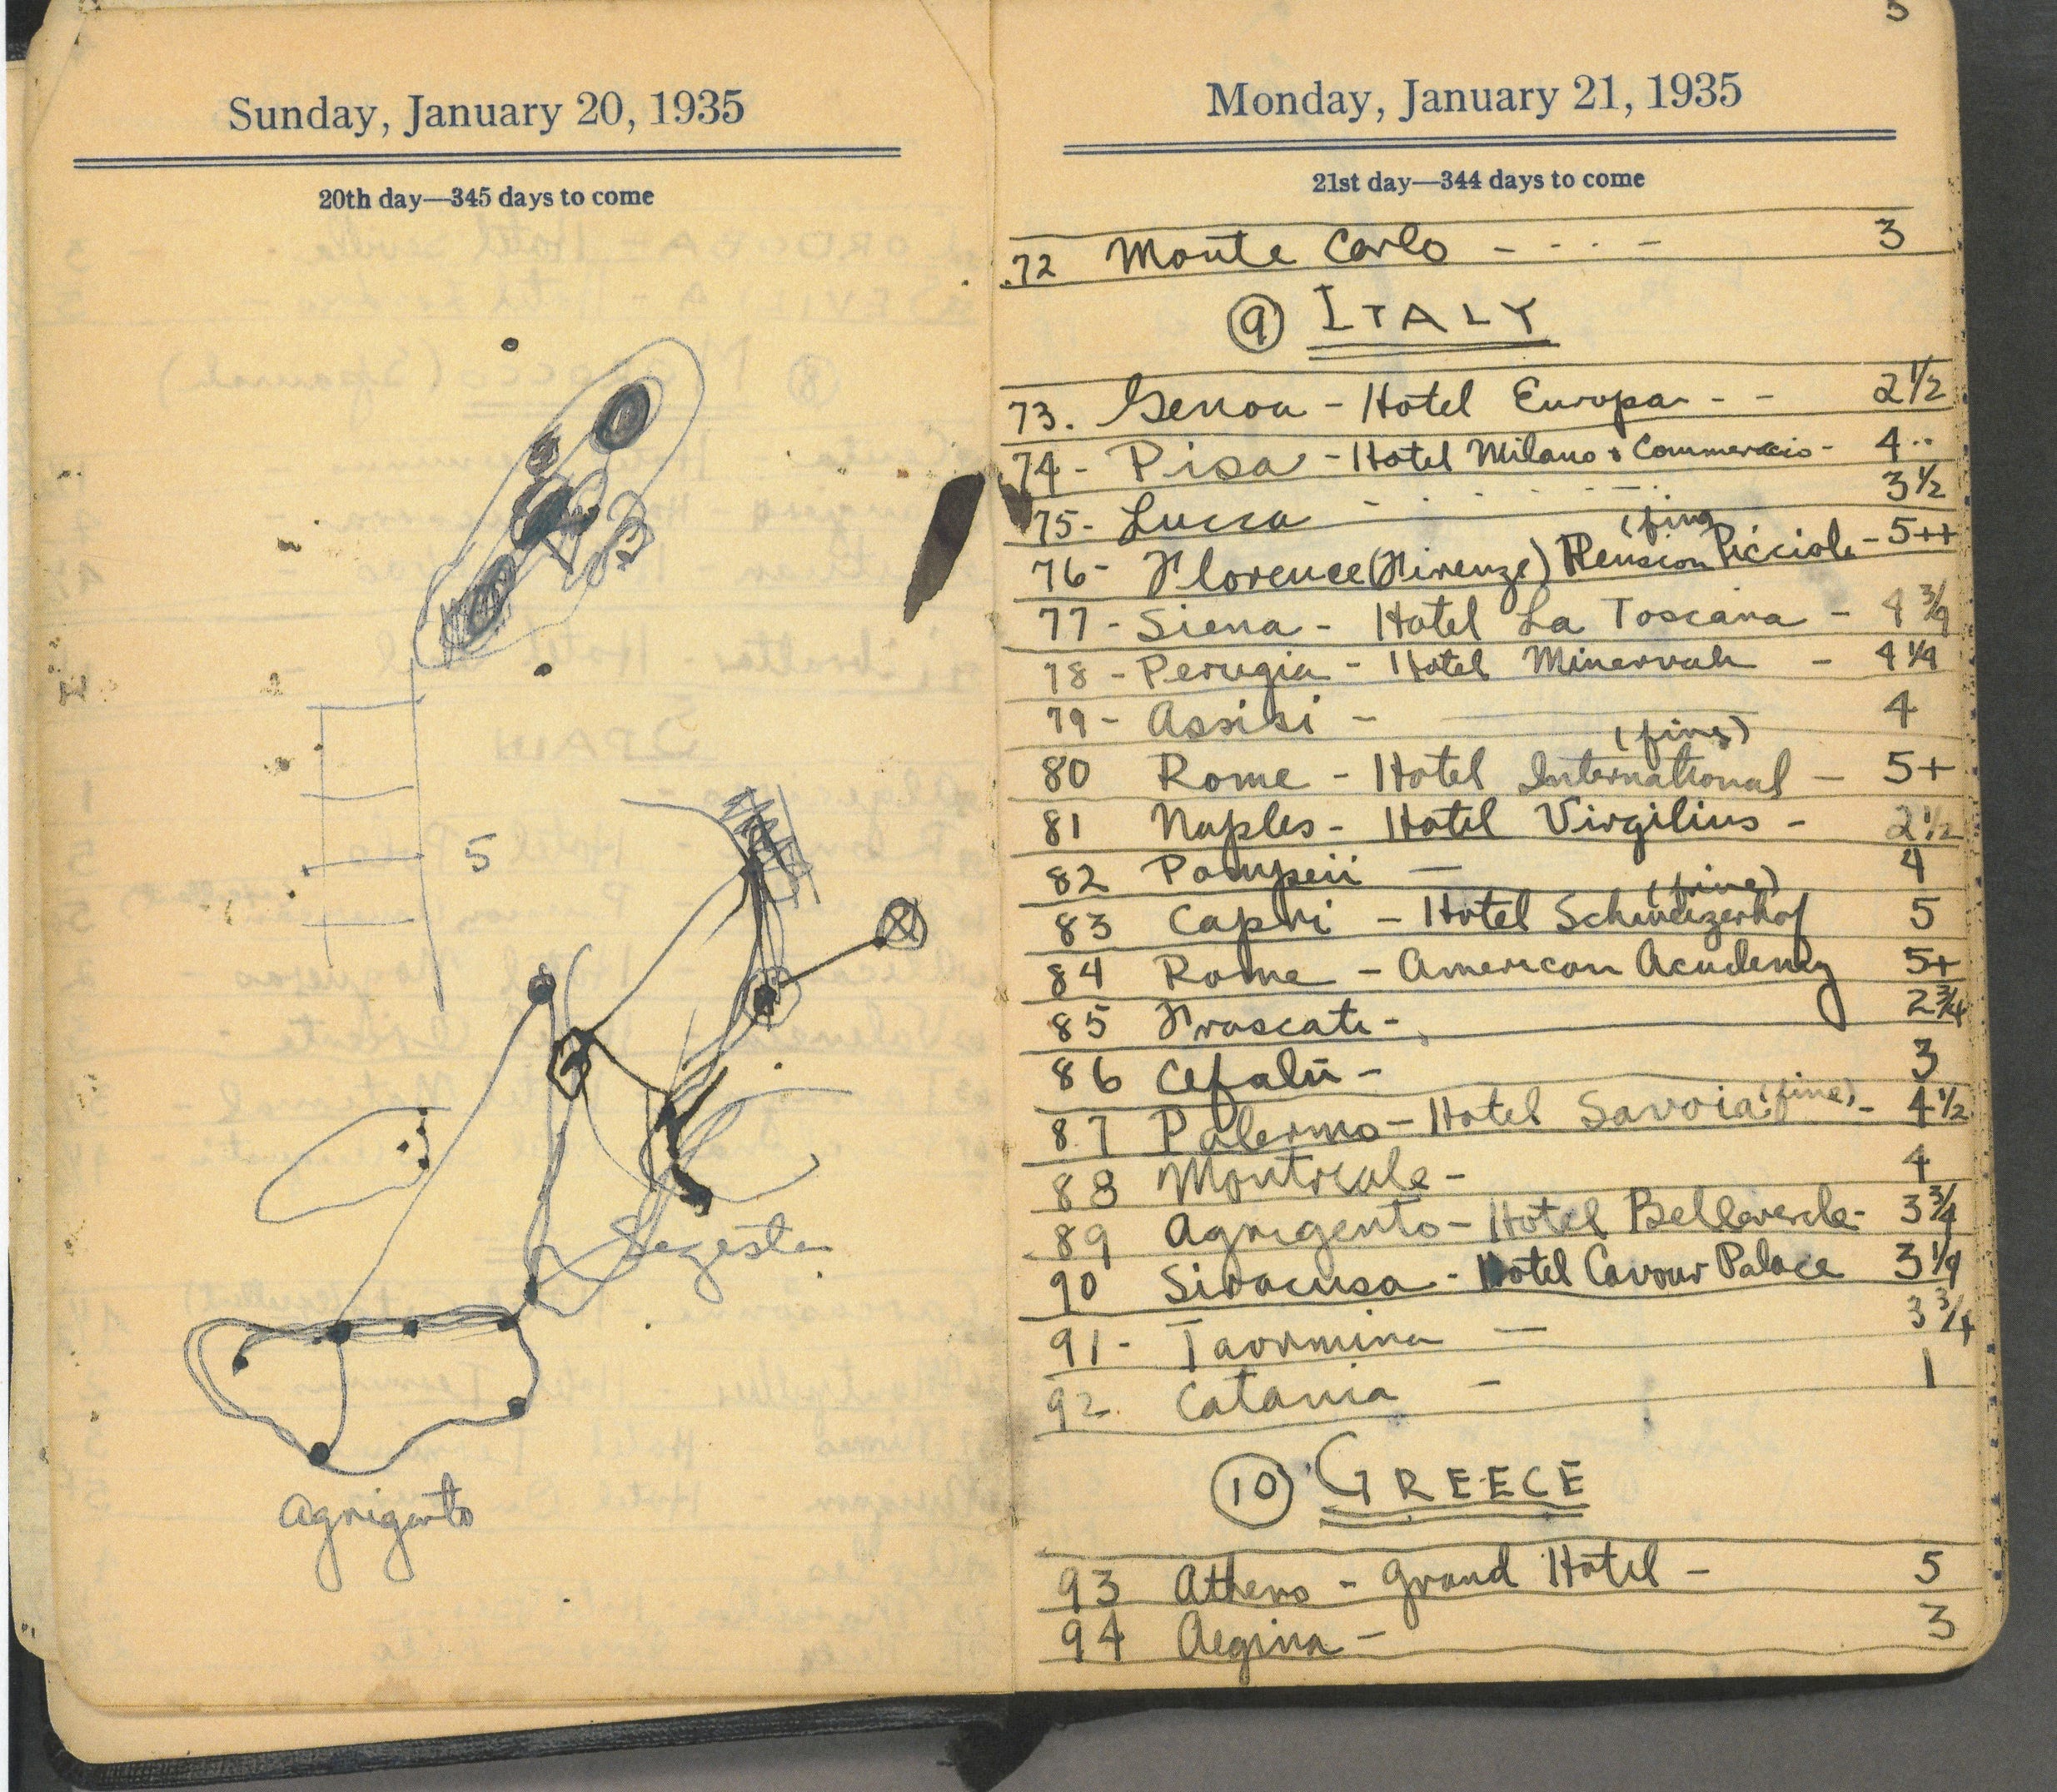 Sunday, January 20, 1935
20th day—345 days to come
5
Segesta
Agrigento
5
Monday, January 21, 1935
21st day—344 days to come
72 Monte Carlo - - - - 3
9 ITALY
73. Genoa - Hotel Europa - - 2 1/2
74 - Pisa - Hotel Milano & Commercio - 4
75 - Lucca - 3 1/2
(fine)
76 - Florence (Firenze) Pension Picciola - 5++
77 - Siena - Hotel La Toscana - 4 3/4
78 - Perugia - Hotel Minervah - 4 1/4
79 - Assisi - 4
(fine)
80 Rome - Hotel International - 5+
81 Naples - Hotel Virgilius - 2 1/2
82 Pompeii - 4
(fine)
83 Capri - Hotel Schweizerhof 5
84 Rome - American Academy 5+
85 Frascati - 2 3/4
86 Cefalù - 3
87 Palermo - Hotel Savoia (fine) - 4 1/2
88 Montreale - 4
89 Agrigento - Hotel Belleverde - 3 3/4
90 Siracusa - Hotel Cavour Palace 3 1/4
91 - Taormina - 3 3/4
92. Catania - 1
10 GREECE
93 Athens - Grand Hotel - 5
94 Aegina - 3